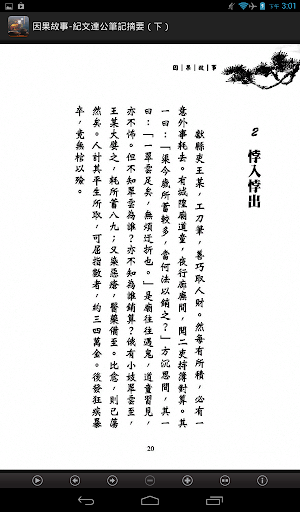 下午 3:01
因果故事-紀文達公筆記摘要（下）
因果故事
2 悖入悖出
獻縣吏王某，工刀筆，善巧取人財。然每有所積，必有一
意外事耗去。有城隍廟道童，夜行廊廡間，聞二吏持簿對算。其
一曰：「渠今歲所蓄較多，當何法以銷之？」方沉思間，其一
曰：「一翠雲足矣，無煩迂折也。」是廟往往遇鬼，道童習見，
亦不怖。但不知翠雲為誰？亦不知為誰銷算？俄有小妓翠雲至，
王某大嬖之，耗所蓄八九；又染惡瘡，醫藥備至。比愈，則已蕩
然矣。人計其平生所取，可屈指數者，約三四萬金。後發狂疾暴
卒，竟無棺以殮。
20